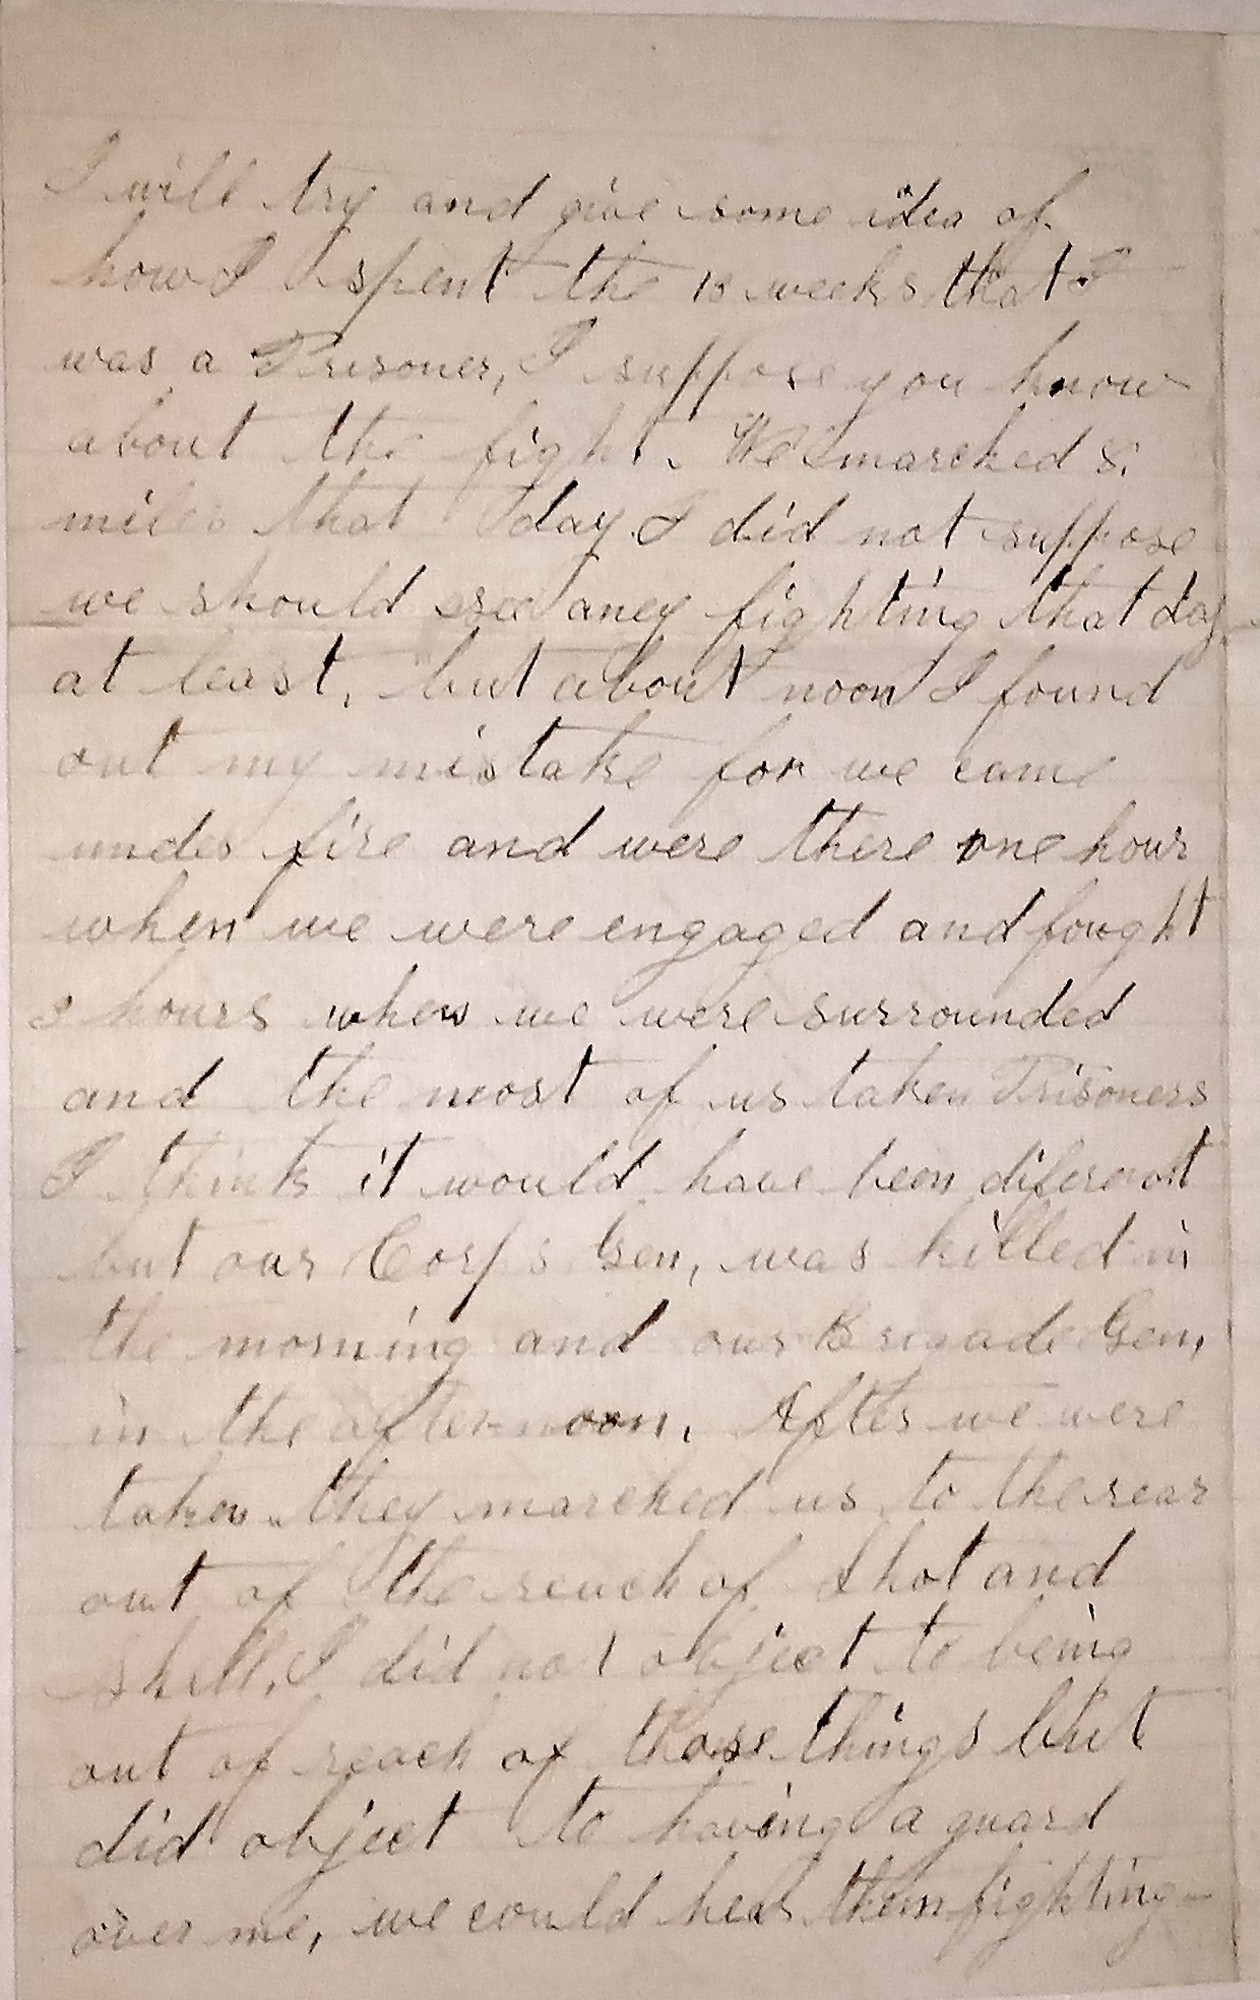 I will try and give some idea of
how I spent the 13 weeks that I
was a Prisoner, I suppose you know
about the fight. We marched 8
miles that day. I did not suppose
we should see aney fighting that day
at least, but about noon I found
out my mistake for we came
under fire and were there one hour
when we were engaged and fought
hours when we were surrounded
and the most of us taken Prisoners
I think it would have been diferent
but our Corps Gen, was killed in
the morning and our Brigade Gen,
in the afternoon. After we were
taken they marched us to the rear
out of the reach of shot and
shell, I did not object to being
out of reach of those things but
did object to having a guard
over me, we could hear them fighting